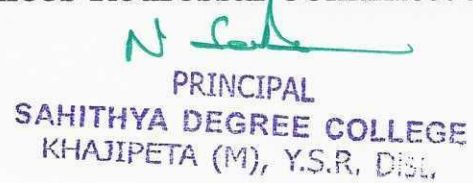 PRINCIPAL
SAHITHYA DEGREE COLLEGE
KHAJIPETA (M), Y.S.R. Dist.